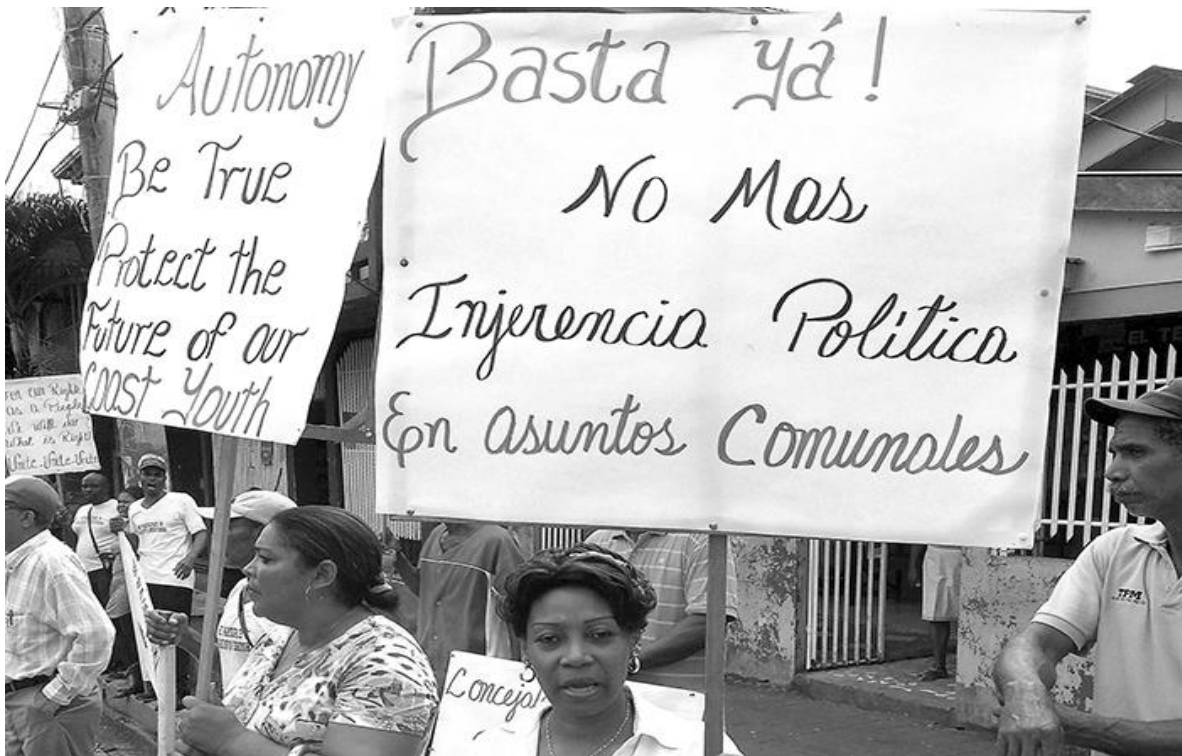 Autonomy
Be True
Protect the
Future of our
Coast Youth
Basta yá!
No Mas
Injerencia Política
En asuntos Comunales
as a People
What is Right
Unite. Unite. Unite
Concejal
EL TE
TFM